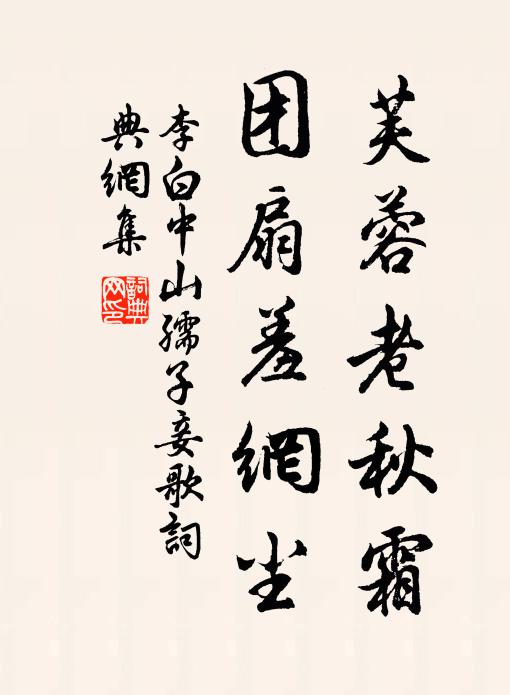 芙蓉老秋霜
团扇羞網尘
李白中山孺子妾歌詞
典網集
詞典网印